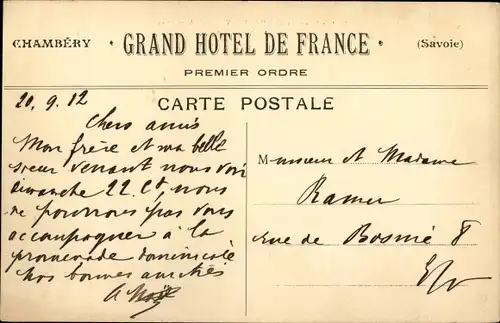 CHAMBÉRY · GRAND HOTEL DE FRANCE · (Savoie)
PREMIER ORDRE
CARTE POSTALE
20.9.12
Chers amis
Mon frère et ma belle
sœur venant nous voir
dimanche 22 Ct, nous
ne pouvons pas vous
accompagner à la
promenade dominicale
Nos bonnes amitiés
A
Monsieur et Madame
Ramer
rue de Bosnie 8
E/v